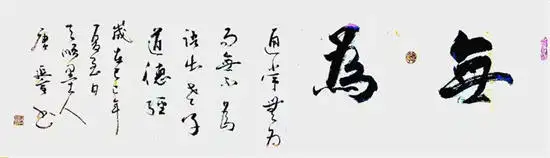 無為
道常無為
而無不為
語出老子
道德經
歲在巳年
夏至日
人
唐書